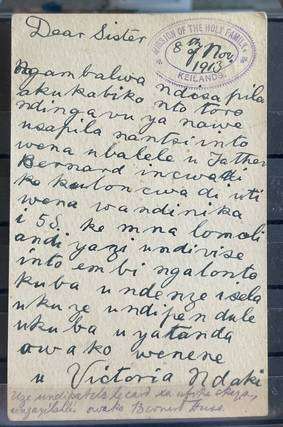 Dear Sister
MISSION OF THE HOLY FAMILY
8th of Nov.
1913
KEILANDS
Ngambalwa ndosapila
akukabiko nto toro
ndingavuya nawe
usapila nantsi into
wena ubalele u Father
Bernard incwadi
ko kuloncwadi uti
wena wandinika
i 5S. ke mna lomali
andiyazi undivise
into embi ngalonto
kuba undenze isela
ukuze undipendule
ukuba uyatanda
owako wenene
u Victoria Ndaki
Uze undipatele card xa ufika
owako Bernard Huss.